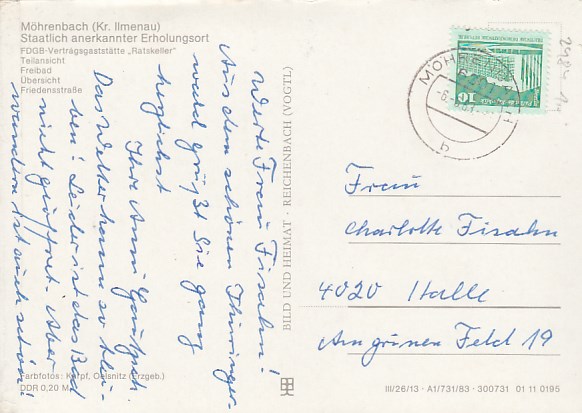 Möhrenbach (Kr. Ilmenau)
Staatlich anerkannter Erholungsort
FDGB-Vertragsgaststätte „Ratskeller"
Teilansicht
Freibad
Übersicht
Friedensstraße
Werte Frau Fisahn!
Aus dem schönen Thüringer-
wald grüßt Sie ganz
herzlichst
Ihre Anni
Das Wetter kann so blei-
ben! Leider ist das Bad
nicht geöffnet. Aber
wandern ist auch schön!
Farbfotos: Karpf, Oelsnitz (Erzgeb.)
DDR 0,20 M
BILD UND HEIMAT · REICHENBACH (VOGTL)
10
b
Frau
Charlotte Fisahn
4020 Halle
Am grünen Feld 19
III/26/13 · A1/731/83 · 300731 01 11 0195